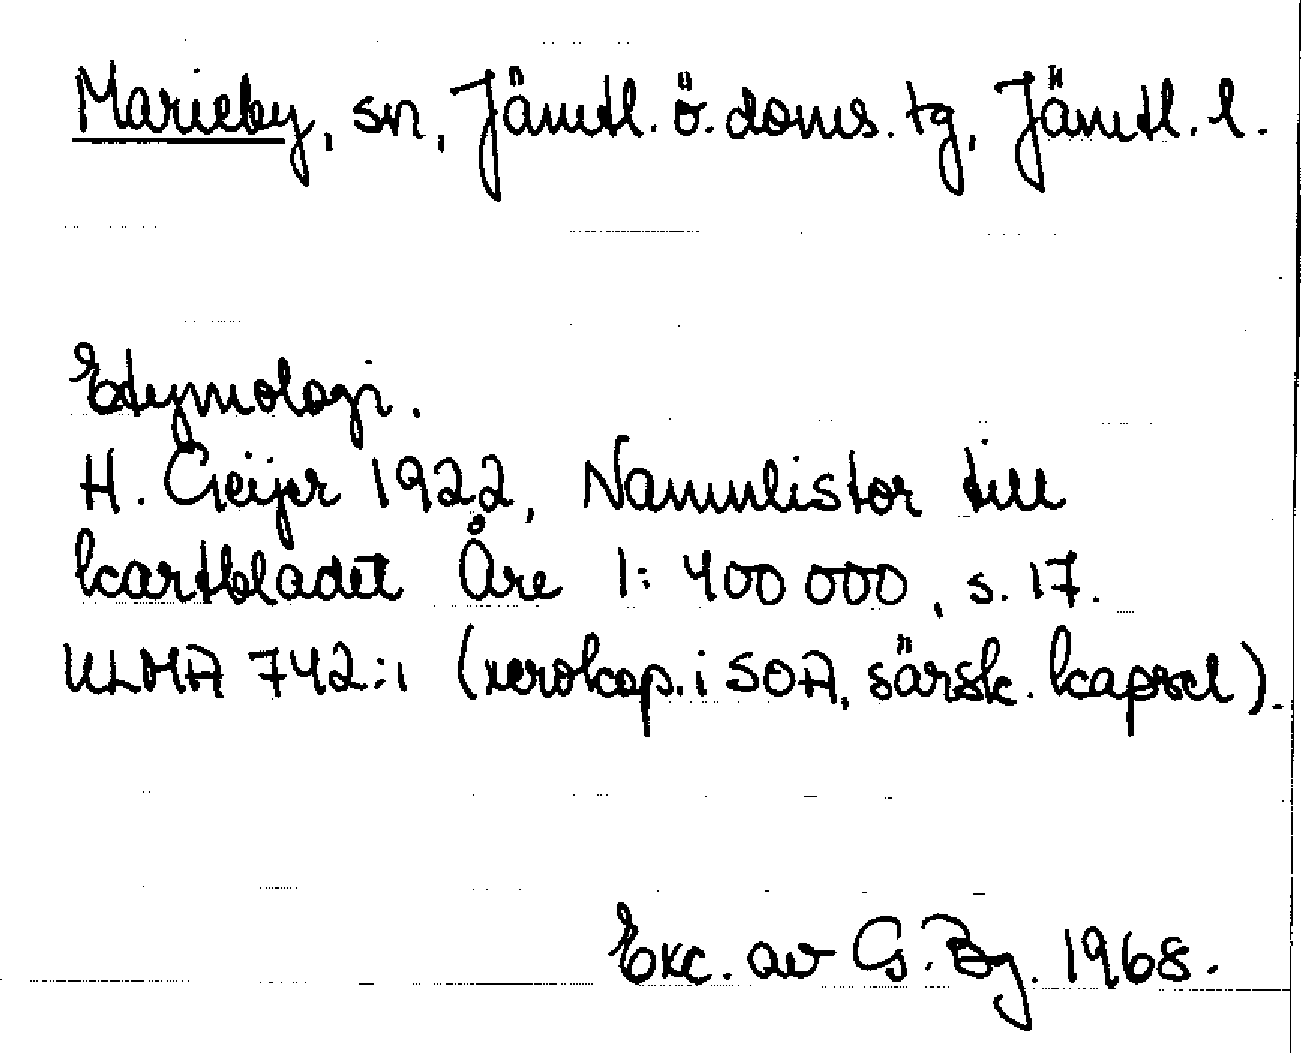 Marieby, sn, Jämtl. ö. doms. tg, Jämtl. l.
Etymologi.
H. Geijer 1922, Namnlistor till
kartbladet Åre 1:400 000, s. 17.
ULMA 742:1 (xerokop. i SOA, särsk. kapsel).
Exc. av G. Bg. 1968.